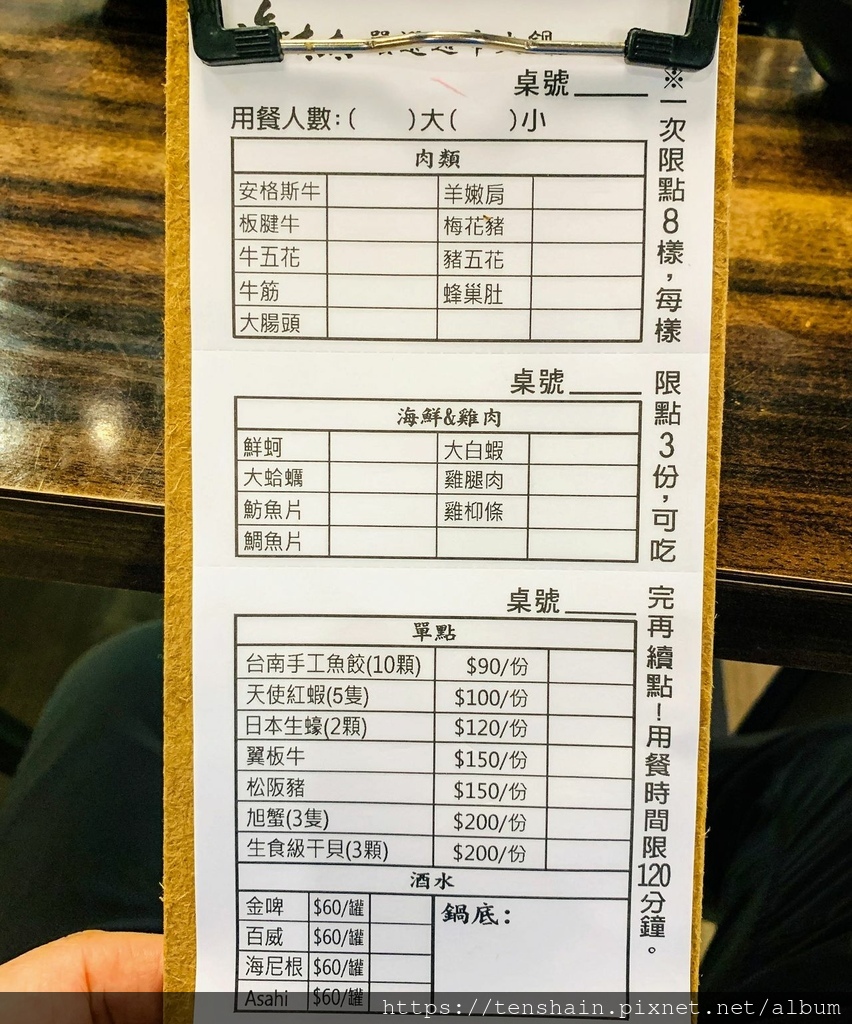 桌號
用餐人數:(　　)大(　　)小
肉類
安格斯牛 羊嫩肩
板腱牛 梅花豬
牛五花 豬五花
牛筋 蜂巢肚
大腸頭
桌號
海鮮&雞肉
鮮蚵 大白蝦
大蛤蠣 雞腿肉
魴魚片 雞柳條
鯛魚片
桌號
單點
台南手工魚餃(10顆) $90/份
天使紅蝦(5隻) $100/份
日本生蠔(2顆) $120/份
翼板牛 $150/份
松阪豬 $150/份
旭蟹(3隻) $200/份
生食級干貝(3顆) $200/份
酒水
金啤 $60/罐 鍋底:
百威 $60/罐
海尼根 $60/罐
Asahi $60/罐
※一次限點8樣，每樣限點3份，可吃完再續點！用餐時間限120分鐘。
https://tenshain.pixnet.net/album